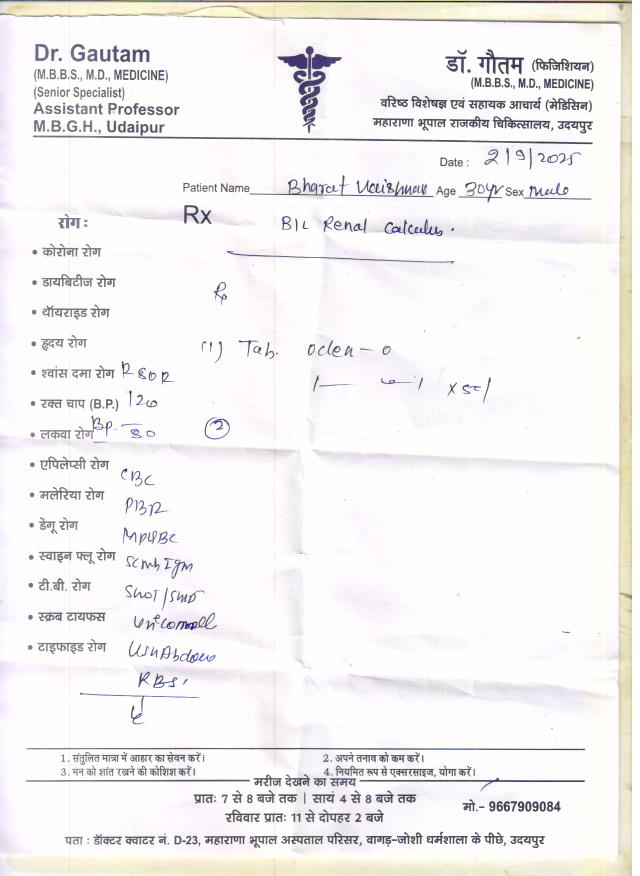 Dr. Gautam
(M.B.B.S., M.D., MEDICINE)
(Senior Specialist)
Assistant Professor
M.B.G.H., Udaipur
डॉ. गौतम (फिजिशियन)
(M.B.B.S., M.D., MEDICINE)
वरिष्ठ विशेषज्ञ एवं सहायक आचार्य (मेडिसिन)
महाराणा भूपाल राजकीय चिकित्सालय, उदयपुर
Date : 2/9/2025
Patient Name Bharat Age 30yr Sex male
रोग :
Rx
B/L Renal Calculus.
• कोरोना रोग
• डायबिटीज रोग
Rx
• थॉयराइड रोग
• हृदय रोग
(1) Tab. -o
• श्वांस दमा रोग
• रक्त चाप (B.P.) 120
• लकवा रोग Bp. 80
(2)
• एपिलेप्सी रोग
CBC
• मलेरिया रोग
• डेंगू रोग
• स्वाइन फ्लू रोग
• टी.बी. रोग
SGOT/SGPT
• स्क्रब टायफस
• टाइफाइड रोग
RBS.
1. संतुलित मात्रा में आहार का सेवन करें।
2. अपने तनाव को कम करें।
3. मन को शांत रखने की कोशिश करें।
4. नियमित रूप से एक्सरसाइज, योगा करें।
मरीज देखने का समय
प्रातः 7 से 8 बजे तक | सायं 4 से 8 बजे तक
रविवार प्रातः 11 से दोपहर 2 बजे
मो.- 9667909084
पता : डॉक्टर क्वाटर नं. D-23, महाराणा भूपाल अस्पताल परिसर, वागड़-जोशी धर्मशाला के पीछे, उदयपुर